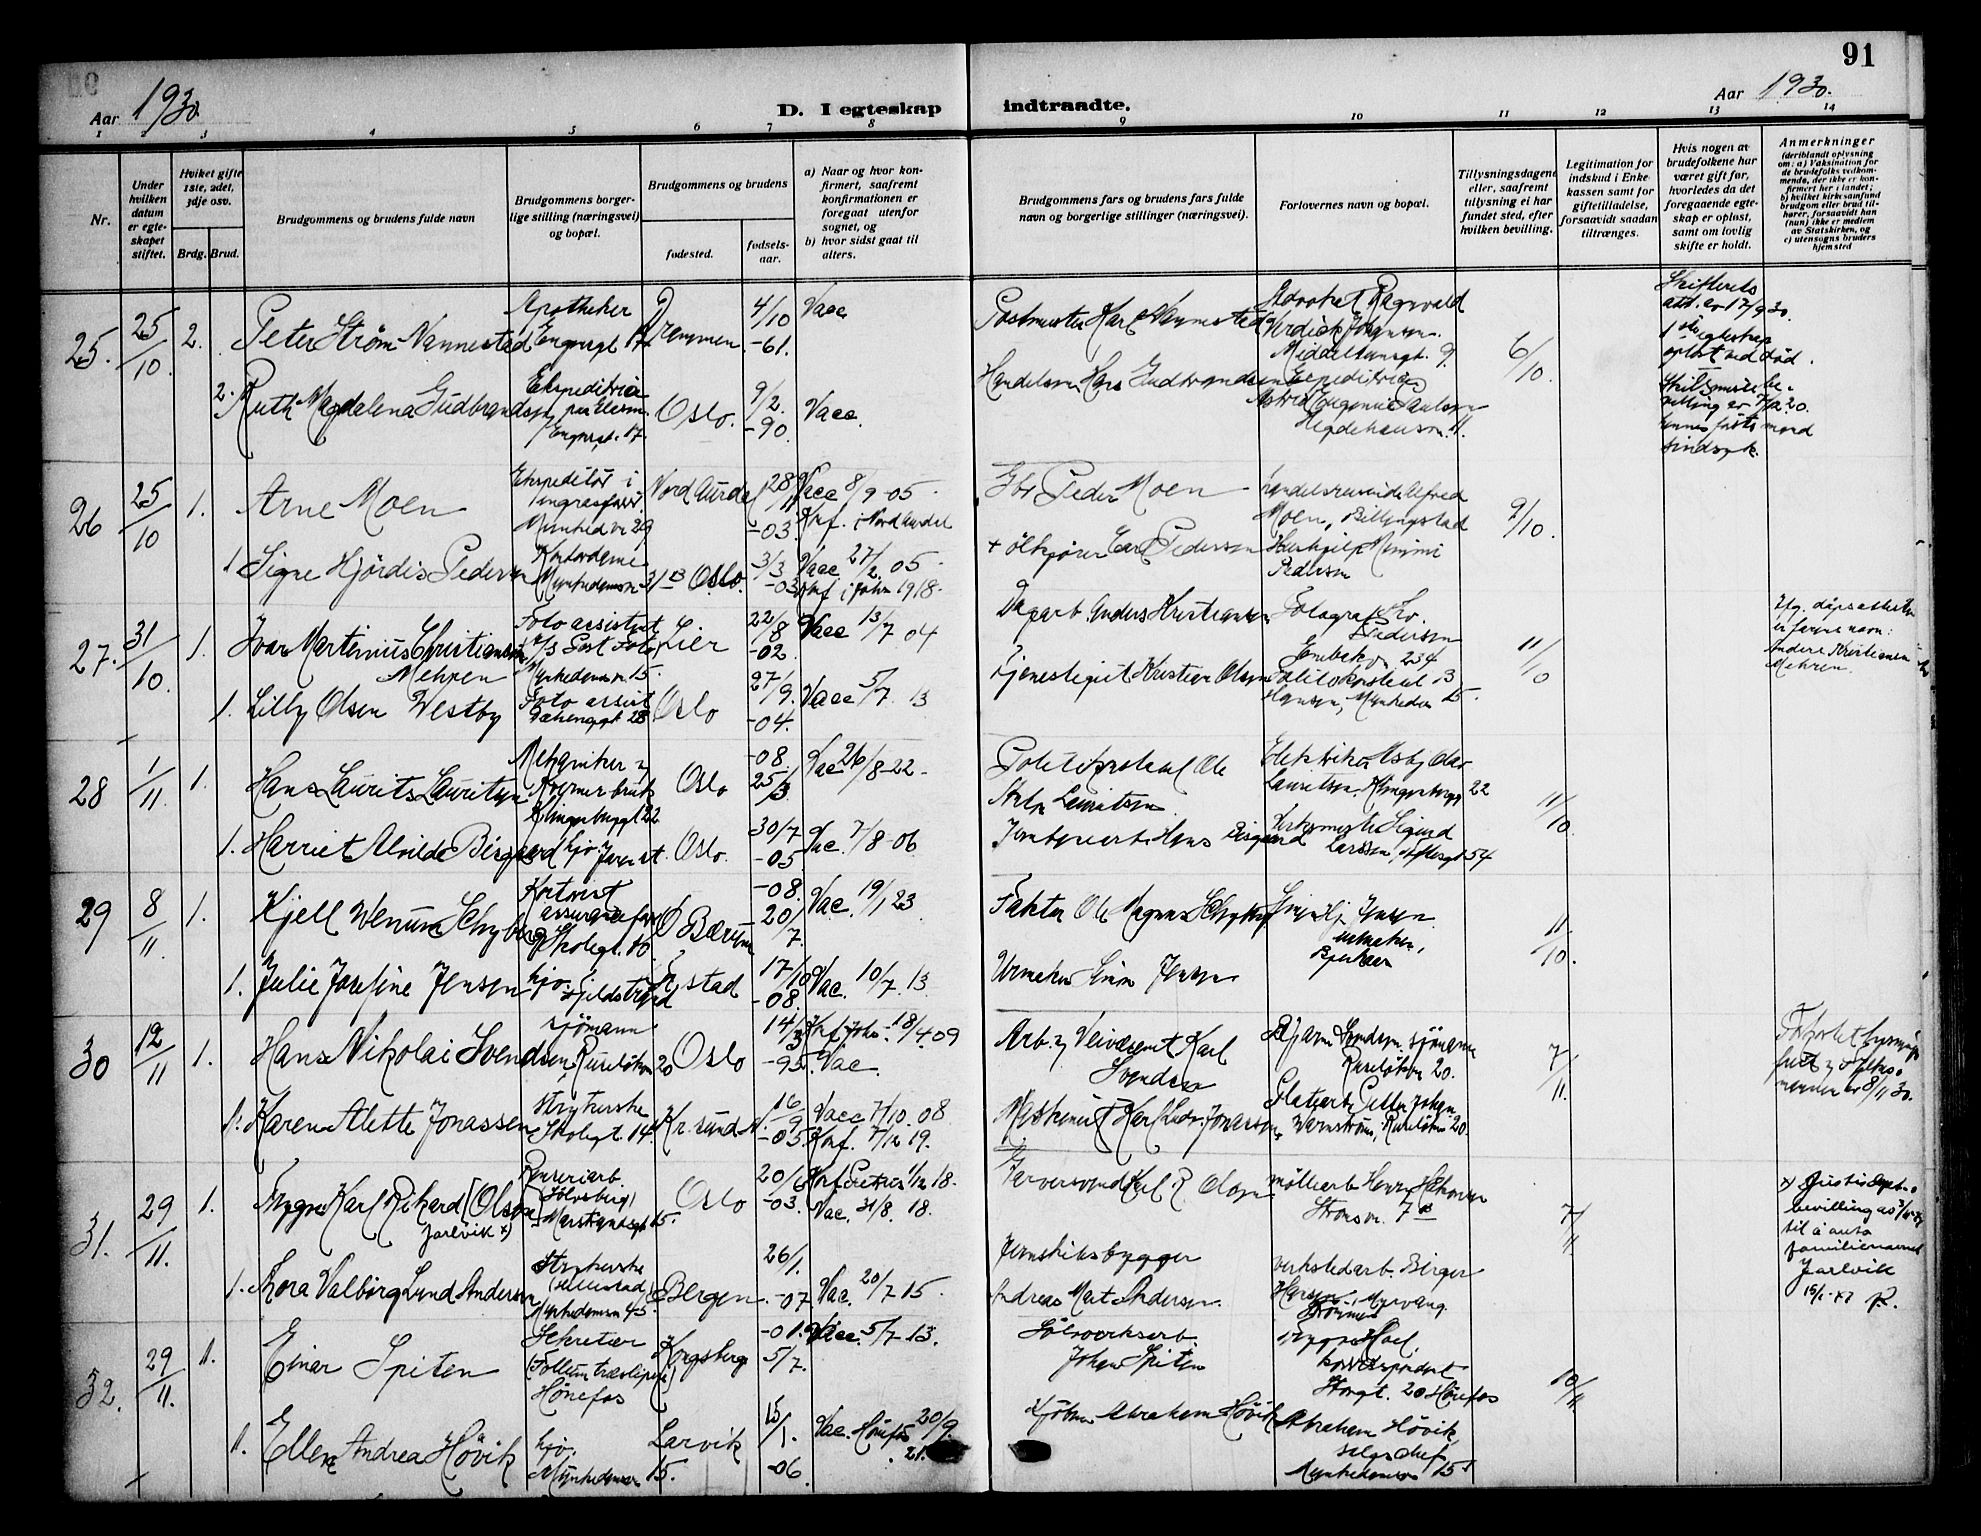 91
Aar 1930
D. I egteskap
indtraadte.
Aar 1930.
1 2 3 4 5 6 7 8 9 10 11 12 13 14
Nr.
Under hvilken datum er egteskapet stiftet.
Hvilket gifte 1ste, 2det, 3dje osv.
Brdg. Brud.
Brudgommens og brudens fulde navn
Brudgommens borgerlige stilling (næringsvei) og bopæl.
Brudgommens og brudens
fødested.
fødselsaar.
a) Naar og hvor konfirmert, saafremt konfirmationen er foregaat utenfor sognet, og
b) hvor sidst gaat til alters.
Brudgommens fars og brudens fars fulde navn og borgerlige stillinger (næringsvei).
Forlovernes navn og bopæl.
Tillysningsdagene eller, saafremt tillysning ei har fundet sted, efter hvilken bevilling.
Legitimation for indskud i Enkekassen samt for giftetilladelse, forsaavidt saadan tiltrænges.
Hvis nogen av brudefolkene har været gift før, hvorledes da det foregaaende egteskap er opløst, samt om lovlig skifte er holdt.
Anmerkninger
(deriblandt oplysning om: a) Vaksination for de brudefolks vedkommende, der ikke er konfirmert her i landet; b) hvilket kirkesamfund brudgom eller brud tilhører, forsaavidt han (hun) ikke er medlem av Statskirken, og c) utensogns bruders hjemsted
25. 25/10 2. Peter Strøm Nannestad
Apotheker
Engensgt 17
Drammen 4/10 -61. Vacc
Postmester Karl Nannestad
Advokat Ragnvald
Middelthunsgt. 9.
6/10.
Skifterets att. av 17/9 30.
1ste egteskap opløst ved død.
2. Ruth Magdalena Gudbrandsen
Ekspeditrice
Engensgt. 17.
Oslo. 9/2. -90. Vacc.
Handelsm. Hans Gudbrandsen
Ekspeditrice
Astrid Eugenie Paulsen
Hegdehaugsv. 11.
26 25/10 1. Arne Moen
Ekspeditør i
Munkedv 29
Nord Aurdal 28/11 -03 Vacc 8/9-05.
Knf. i Nord Aurdal
Peder Moen
Handelsreisende Alfred Moen, Billingstad
9/10.
1 Signe Hjördis Pedersen
Kontordame
Munkedamsv. 31 B Oslo. 3/3 -03 Vacc. 27/2. 05.
Knf i Joh. 1918.
+ ölkjører Carl Pedersen
Hushjelp Mimmi Pedersen
27. 31/10. 1. Ivar Martinius Christiansen Mehren
Foto assistent
Munkedamsv. 15.
Lier 22/8 -02. Vacc 13/7 04
Dagarb. Anders Kristiansen
Fotograf
Pedersen
11/10
Iflg. dåpsattesten er farens navn: Anders Kristiansen Mehren.
1. Lilly Olsen Westby
Foto assist
Oslo 27/9. -04. Vacc 5/7 13
Tjenestegut Kristian Olsen
Politikonstabel
Hansen, Munkedv 15.
28 1/11. 1. Hans Laurits Lauritsen
Mekaniker
Kværner bruk
Klingenbergt 22
Oslo -08. 25/3. Vac 26/8-22.
Politikonstabel Ole Lauritsen
Elektriker
Lauritsen, Klingenbergt 22
11/10.
1. Harriet Alvilde Bisgaard
Oslo. 30/7 -05. Vac. 7/8-06
Jernbanearb. Hans Bisgaard
Verksmester Sigurd Larssen, 54
29 8/11. 1. Kjell Wenum Schyberg
Kontorist
Skolegt. 10.
Ø. Bærum -08. 20/7. Vac. 19/1 23
Faktor Ole Magnus Schyberg
Jensen urmaker,
11/10.
1. Julie Josefine Jensen
hjv.
Fjeldstrand
17/10 -08. Vac. 10/7. 13.
Urmaker Simon Jensen
30 12/11 1. Hans Nikolai Svendsen
sjømann
Ruseløkv 20
Oslo 14/3 -95. Knf. Joh. 18/4.09
Vac.
Arb. Karl Svendsen
Hjalmar Svendsen. sjømann
Ruseløkv 20.
7/11.
1. Karen Alette Jonassen
Strykerske
Skolegt. 14
Kr.sund N. 16/9 -05. Vacc 7/10. 08
Knf. 7/12 19.
Maskinist Karl Jonassen
Platearb. Petter Johan Warnström, Ruseløkv 20.
31. 29/11. 1. Trygve Karl Rikard (Olsen) Jarlvik x)
Renseriarb.
(Sølvsberg)
Marstrandsgt 15.
Oslo 20/6 -03. Knf. Petrus 1/12 18.
Vac. 31/8. 18.
Garversvend Karl R. Olsen
møllearb. Henry Håkonsen
Strømsv. 7 B
7/11
x) Justisdept.s bevilling av
til å anta familienavnet Jarlvik
1. Thora Valborg Lund Andersen
Strykerske
Munkedamsv 45.
Bergen. 26/1. -07 Vac. 20/7 15.
Jernskibsbygger Andreas Mart. Andersen.
verkstedarb. Birger Hansen, Myrvang. Strømmen
32. 29/11. 1. Einar Spiten
Sekretær
(Follum træsliperi)
Hønefos
Kongsberg -01. 5/7. Vacc. 5/7-13.
Sølvverksarb. Johan Spiten
Trygve Hoel. korrespondent
Storgt. 20 Hønefos
10/11
1. Ellen Andrea Høvik
hjv.
Munkedamsv 15.
Larvik 15/1. -06. Vac. Hønefos 20/9. 21.
Abraham Høvik
Abraham Høvik, salgschef, Munkedamsv 15